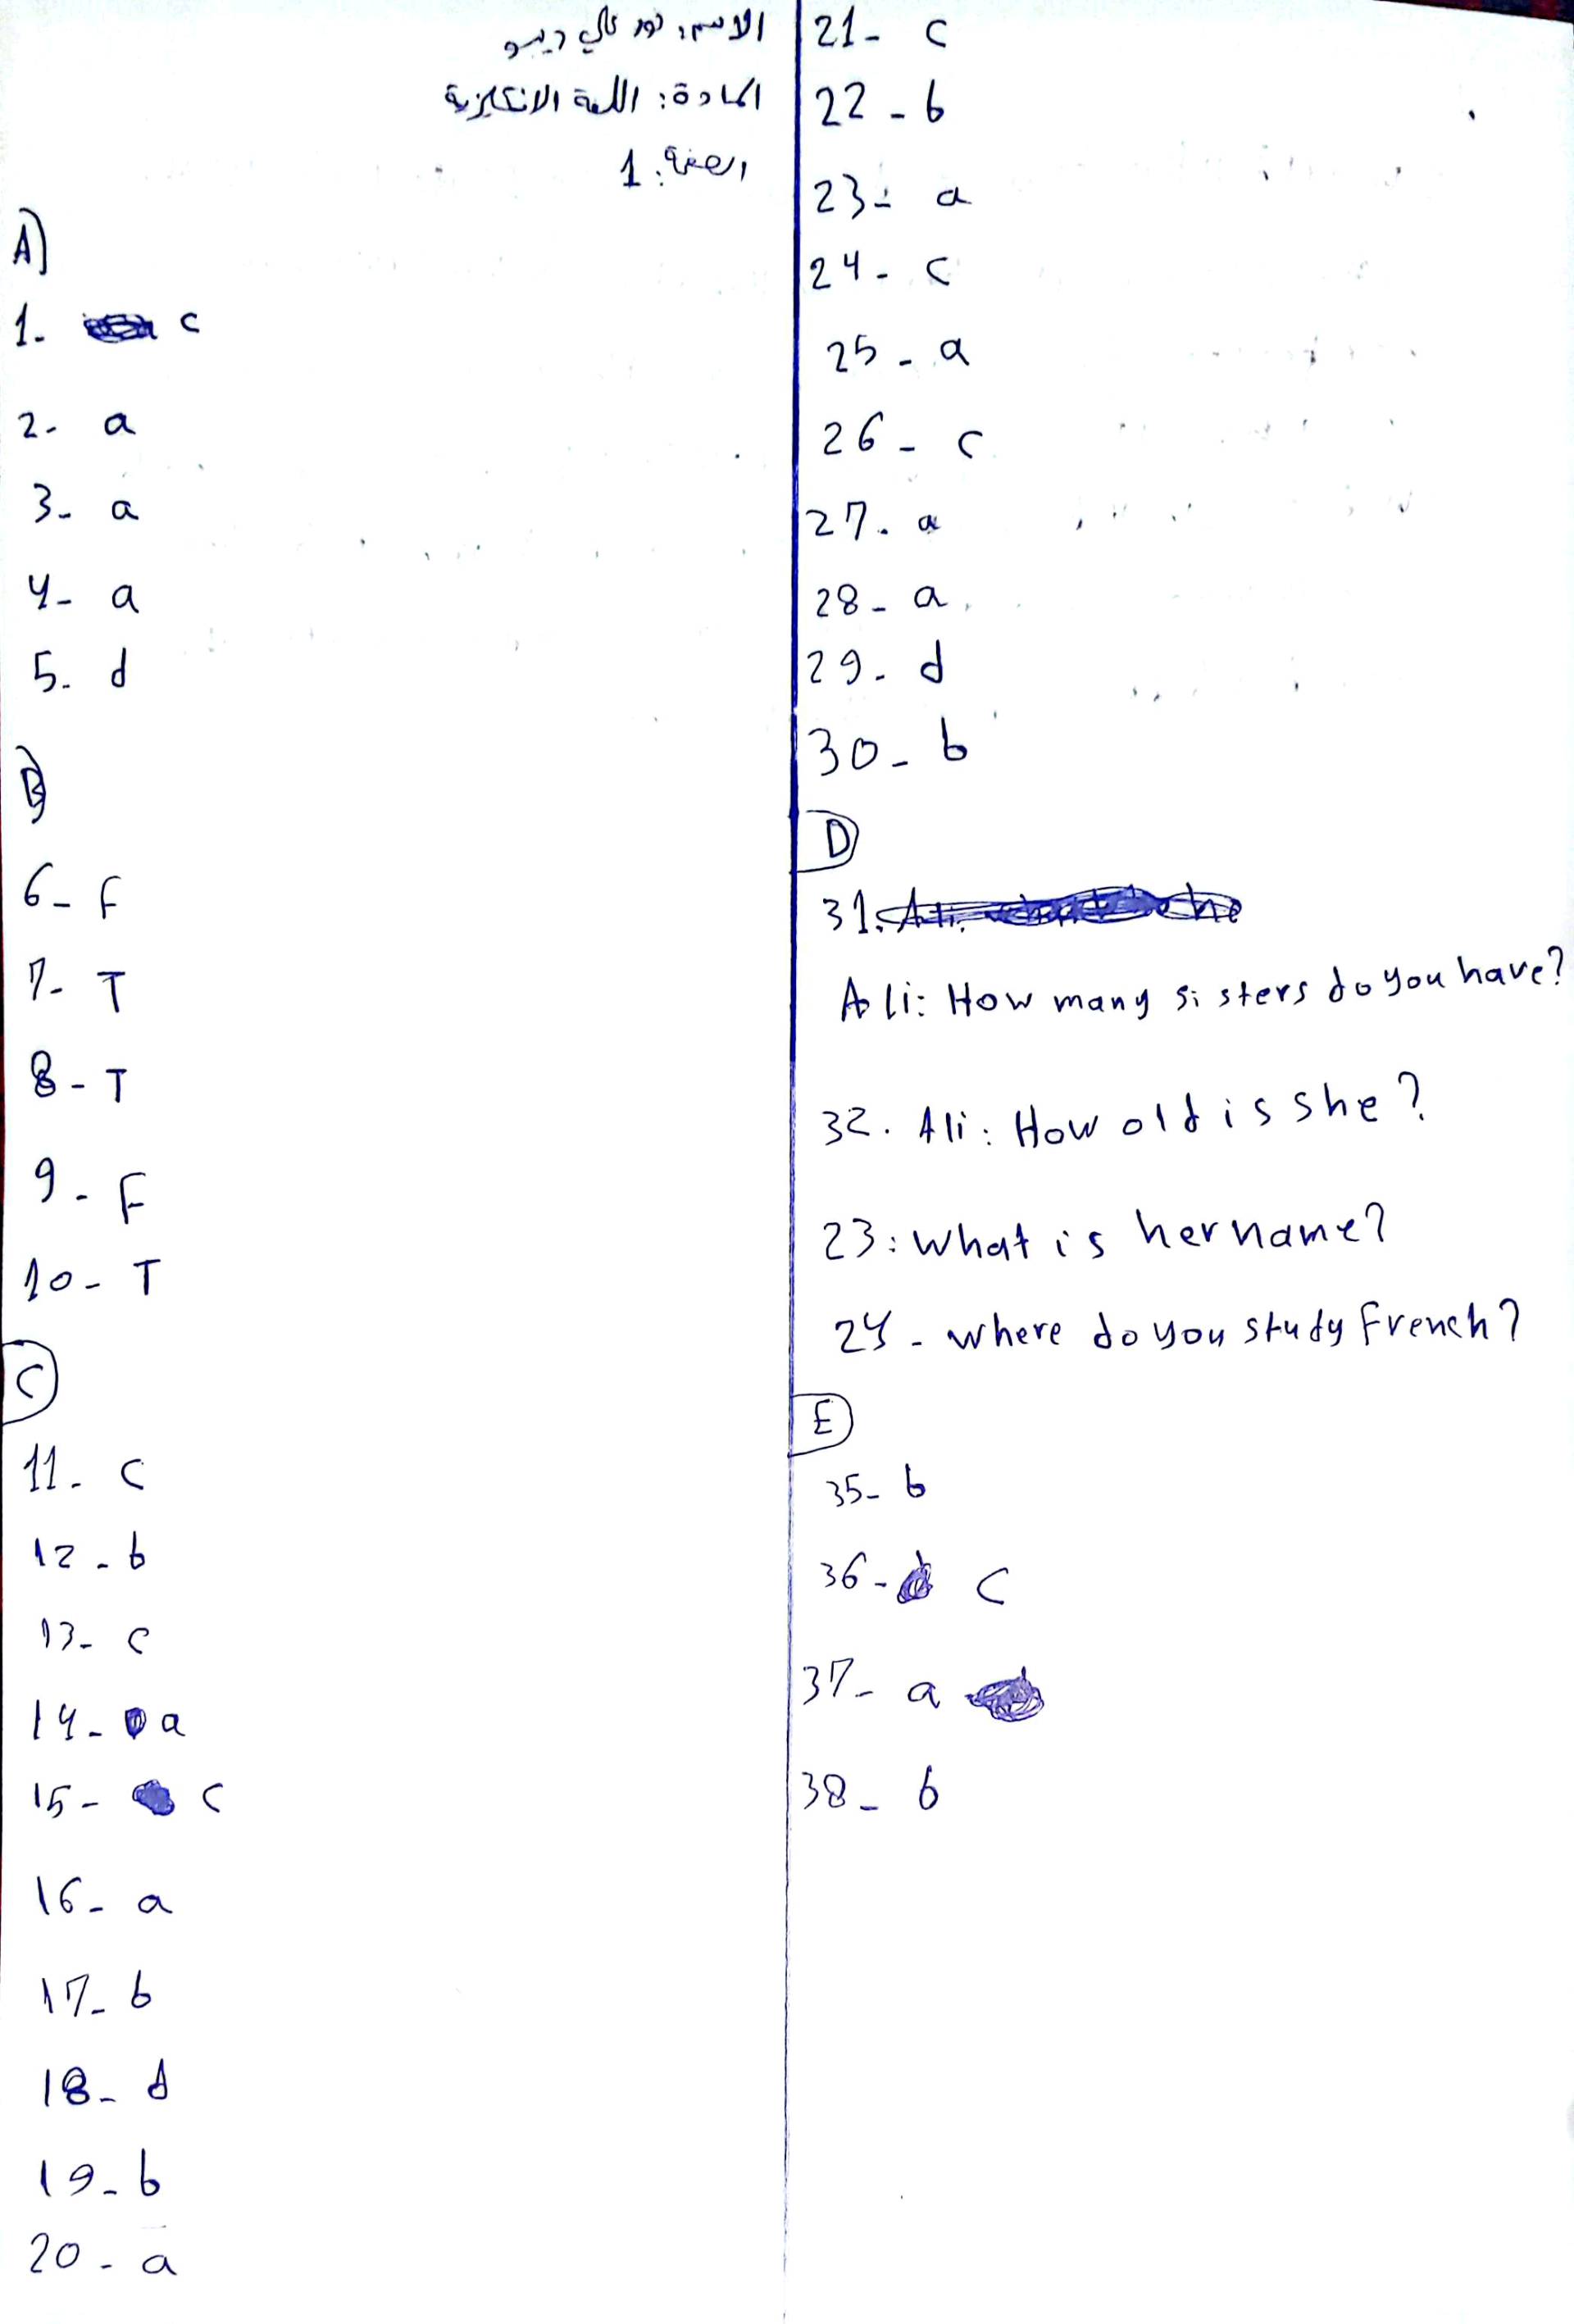 الاسم: نور علي ديبو
المادة: اللغة الانكليزية
الصفحة: 1
A)
1- c
2- a
3- a
4- a
5- d
B)
6- F
7- T
8- T
9- F
10- T
C)
11- c
12- b
13- c
14- a
15- c
16- a
17- b
18- d
19- b
20- a
21- c
22- b
23- a
24- c
25- a
26- c
27- a
28- a
29- d
30- b
D)
31.
Ali: How many sisters do you have?
32. Ali: How old is she?
23: What is her name?
24- where do you study French?
E)
35- b
36- c
37- a
38- b